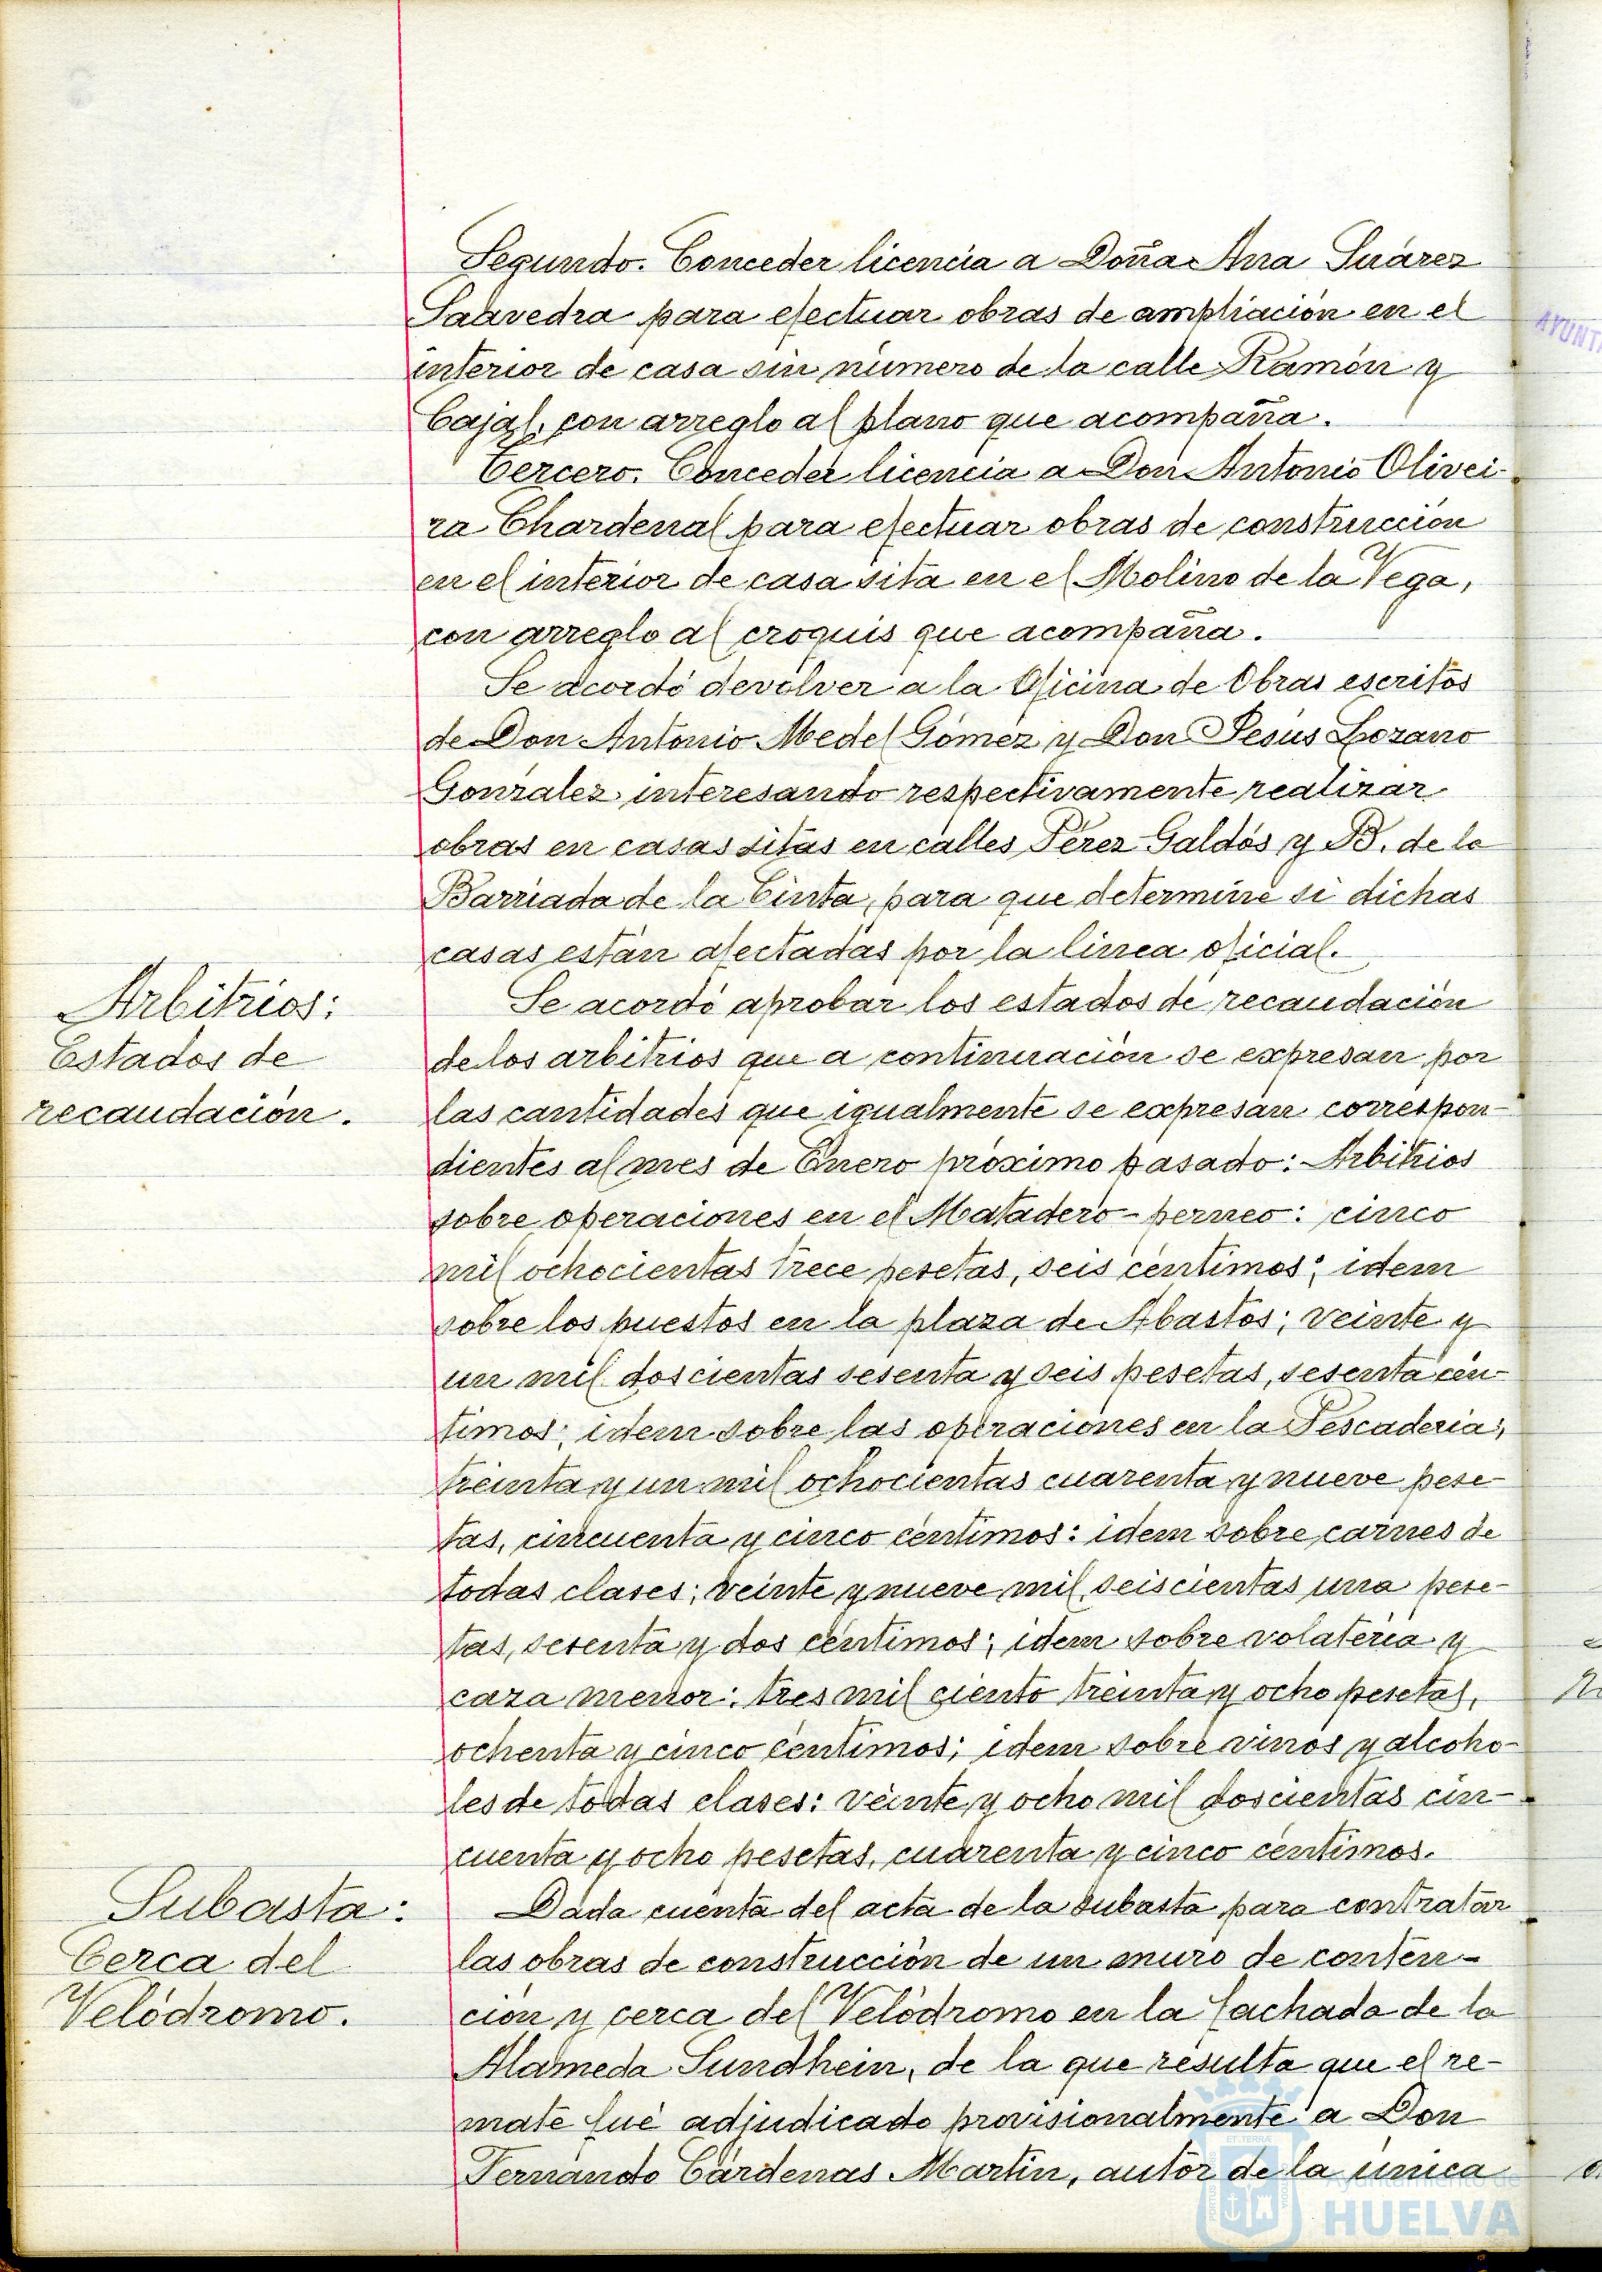 Segundo. Conceder licencia a Doña Ana Suárez
Saavedra para efectuar obras de ampliación en el
interior de casa sin número de la calle Ramón y
Cajal, con arreglo al plano que acompaña.
Tercero. Conceder licencia a Don Antonio Olivei-
ra Chardenal para efectuar obras de construcción
en el interior de casa sita en el Molino de la Vega,
con arreglo al croquis que acompaña.
Se acordó devolver a la Oficina de Obras escritos
de Don Antonio Medel Gómez y Don Jesús Lozano
González interesando respectivamente realizar
obras en casas sitas en calles Pérez Galdós y B. de la
Barriada de la Cinta, para que determine si dichas
casas están afectadas por la linea oficial.
Arbitrios:
Estados de
recaudación.
Se acordó aprobar los estados de recaudación
de los arbitrios que a continuación se expresan por
las cantidades que igualmente se expresan correspon-
dientes al mes de Enero próximo pasado: Arbitrios
sobre operaciones en el Matadero-perneo: cinco
mil ochocientas trece pesetas, seis céntimos; idem
sobre los puestos en la plaza de Abastos; veinte y
un mil doscientas sesenta y seis pesetas, sesenta cén-
timos; idem sobre las operaciones en la Pescaderia;
treinta y un mil ochocientas cuarenta y nueve pese-
tas, cincuenta y cinco céntimos: idem sobre carnes de
todas clases; veinte y nueve mil seiscientas una pese-
tas, setenta y dos céntimos; idem sobre volatería y
caza menor: tres mil ciento treinta y ocho pesetas,
ochenta y cinco céntimos; idem sobre vinos y alcoho-
les de todas clases: veinte y ocho mil doscientas cin-
cuenta y ocho pesetas, cuarenta y cinco céntimos.
Subasta:
Cerca del
Velódromo.
Dada cuenta del acta de la subasta para contratar
las obras de construcción de un muro de conten-
ción y cerca del Velódromo en la fachada de la
Alameda Sundhein, de la que resulta que el re-
mate fué adjudicado provisionalmente a Don
Fernando Cárdenas Martín, autor de la única
AYUNT
Ayuntamiento de
HUELVA